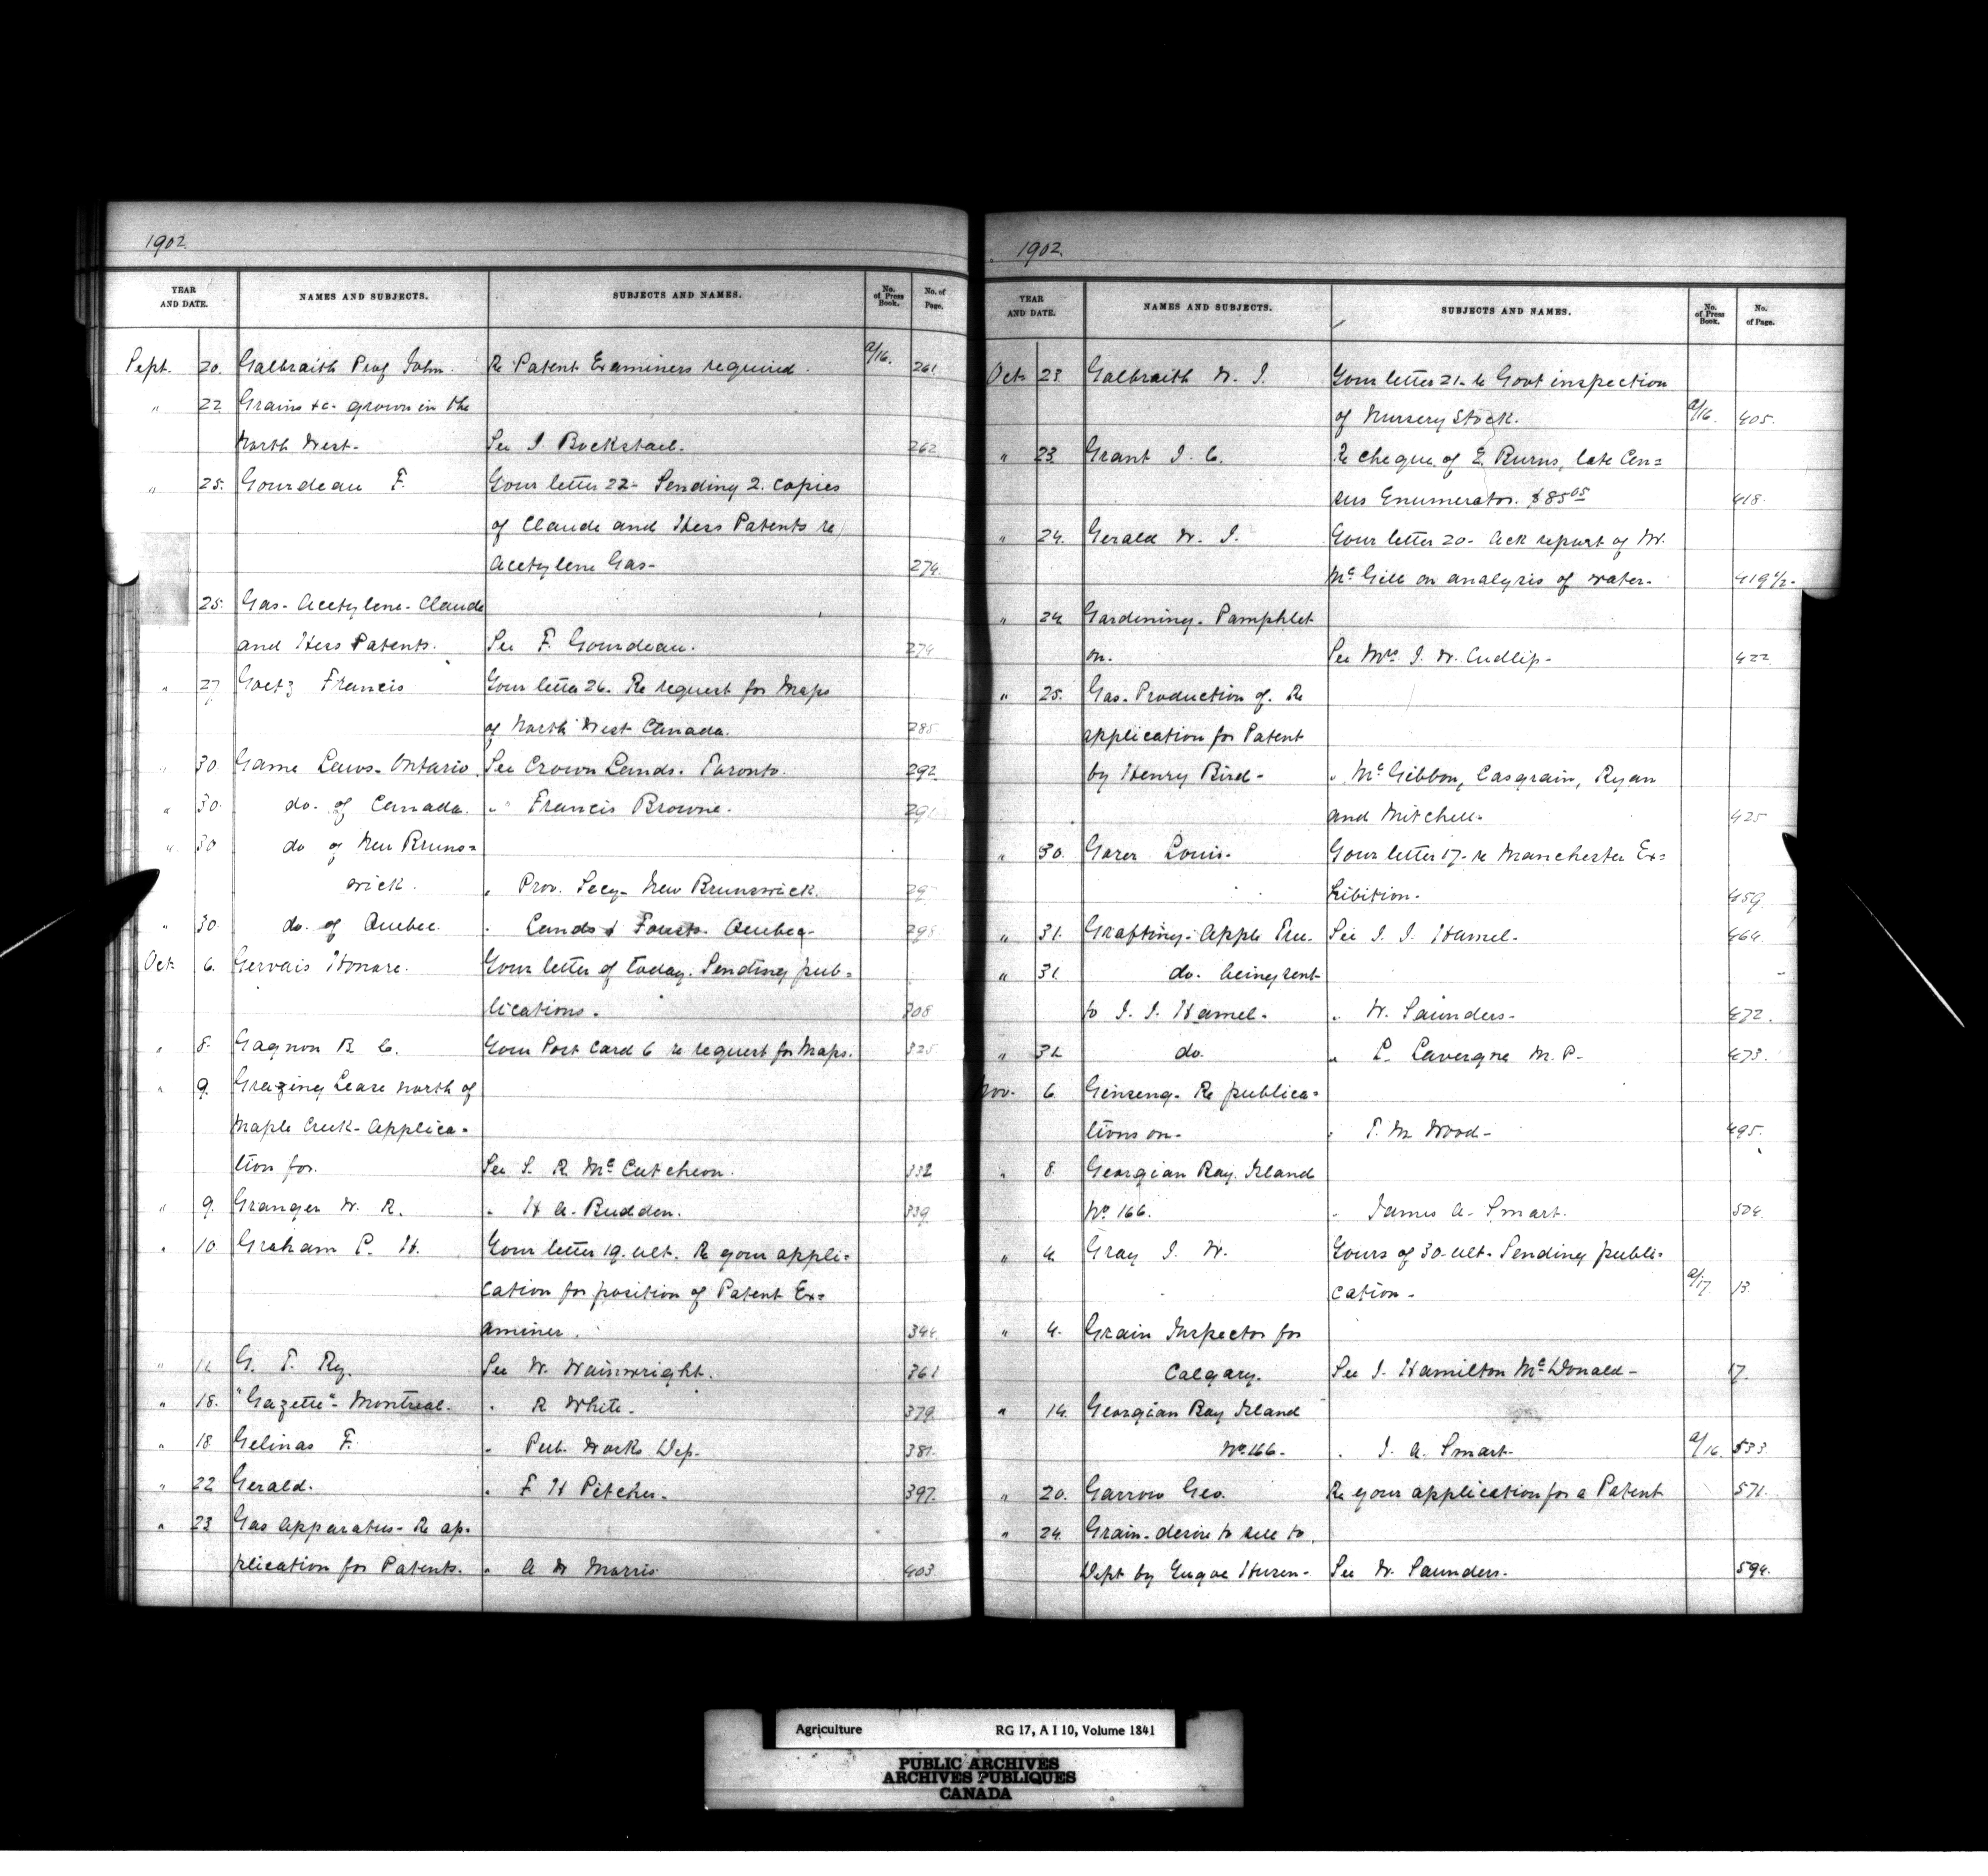 1902.
YEAR AND DATE. NAMES AND SUBJECTS. SUBJECTS AND NAMES. No. of Press Book. No. of Page.
Sept. 20. Galbraith Prof John. Re Patent Examiners required. a/16. 261
" 22 Grains &c- grown in the
North West- See J. Bockstael. 262
" 25. Gourdeau F. Your letter 22- Sending 2. copies
of Claude and Hess Patents re
Acetylene Gas- 274.
25. Gas- Acetylene- Claude
and Hess Patents. See F. Gourdeau. 274
" 27 Goetz Francis Your letter 26. Re request for Maps
of North West Canada. 285.
" 30 Game Laws- Ontario See Crown Lands. Toronto. 292
" 30. do. of Canada. " Francis Browne. 29
" 30 do of New Bruns=
wick. " Prov. Secy- New Brunswick. 29
" 30. do. of Quebec. " Lands & Forests. Quebec- 295
Oct. 6. Gervais Honare. Your letter of today. Sending pub=
lications. 308
" 8. Gagnon B. C. Your Post Card 6 re request for Maps. 325.
" 9. Grazing Lease north of
Maple Creek- Applica=
tion for. See S. R. McCutcheon. 332
" 9. Granger W. R. " H A- Budden. 339.
" 10 Graham P. H. Your letter 19. ult. Re your appli=
cation for position of Patent Ex=
aminer. 344.
" G. T. Ry. See W. Wainwright. 361
" 18. "Gazette"- Montreal. " R White. 379.
" 18 Gelinas F. " Pub. Works Dep. 381.
" 22 Gerald. " F H Pitcher. 397.
" 23 Gas Apparatus- Re ap-
plication for Patents. " A W Morris 403.
1902.
YEAR AND DATE. NAMES AND SUBJECTS. SUBJECTS AND NAMES. No. of Press Book. No. of Page.
Oct 23. Galbraith W. J. Your letter 21- re Govt inspection
of Nursery Stock. a/16. 405.
" 23 Grant J. C. Re cheque of E. Burns, late Cen=
sus Enumerator. $85 05 418.
" 24. Gerald W. J. Your letter 20- Ack report of Mr.
McGill on analysis of water- 419 1/2-
" 24 Gardening- Pamphlet
on. See Mrs J. W. Cudlip- 422
" 25. Gas- Production of. Re
application for Patent
by Henry Bird- " McGibbon, Casgrain, Ryan
and Mitchell- 425
" 30. Garer Louis- Your letter 17- re Manchester Ex=
hibition. 459
" 31. Grafting- Apple Tree. See J. J. Hamel. 464
" 31 do. being sent
to J. J. Hamel. " W. Saunders- 472.
" 31 do. " L. Lavergne M. P- 473.
Nov. 6. Ginseng- Re publica=
tions on- " T. M. Wood- 495.
" 8. Georgian Bay. Island
No 166. " James A- Smart. 504.
" 4 Gray J. W. Yours of 30- ult- Sending publi=
cation- a/17. 13.
" 4. Grain Inspector for
Calgary. See J. Hamilton McDonald- 17.
" 14. Georgian Bay Island
No 166- " J. A. Smart- a/16. 533
" 20. Garrow Geo. Re your application for a Patent 571.
" 24. Grain- desire to sell to
Dept by See W. Saunders- 594.
Agriculture RG 17, A I 10, Volume 1841
PUBLIC ARCHIVES
ARCHIVES PUBLIQUES
CANADA